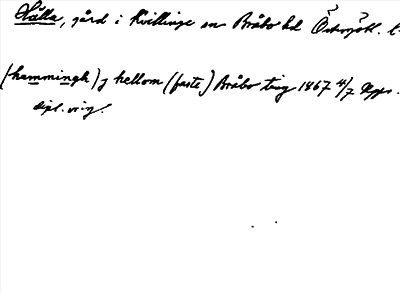 Hälla, gård i Kvillinge sn Bråbo hd Östergötl. l.
(hammingh) j hellom (faste) Bråbo ting 1867 4/7 Upps.
dipl. orig.